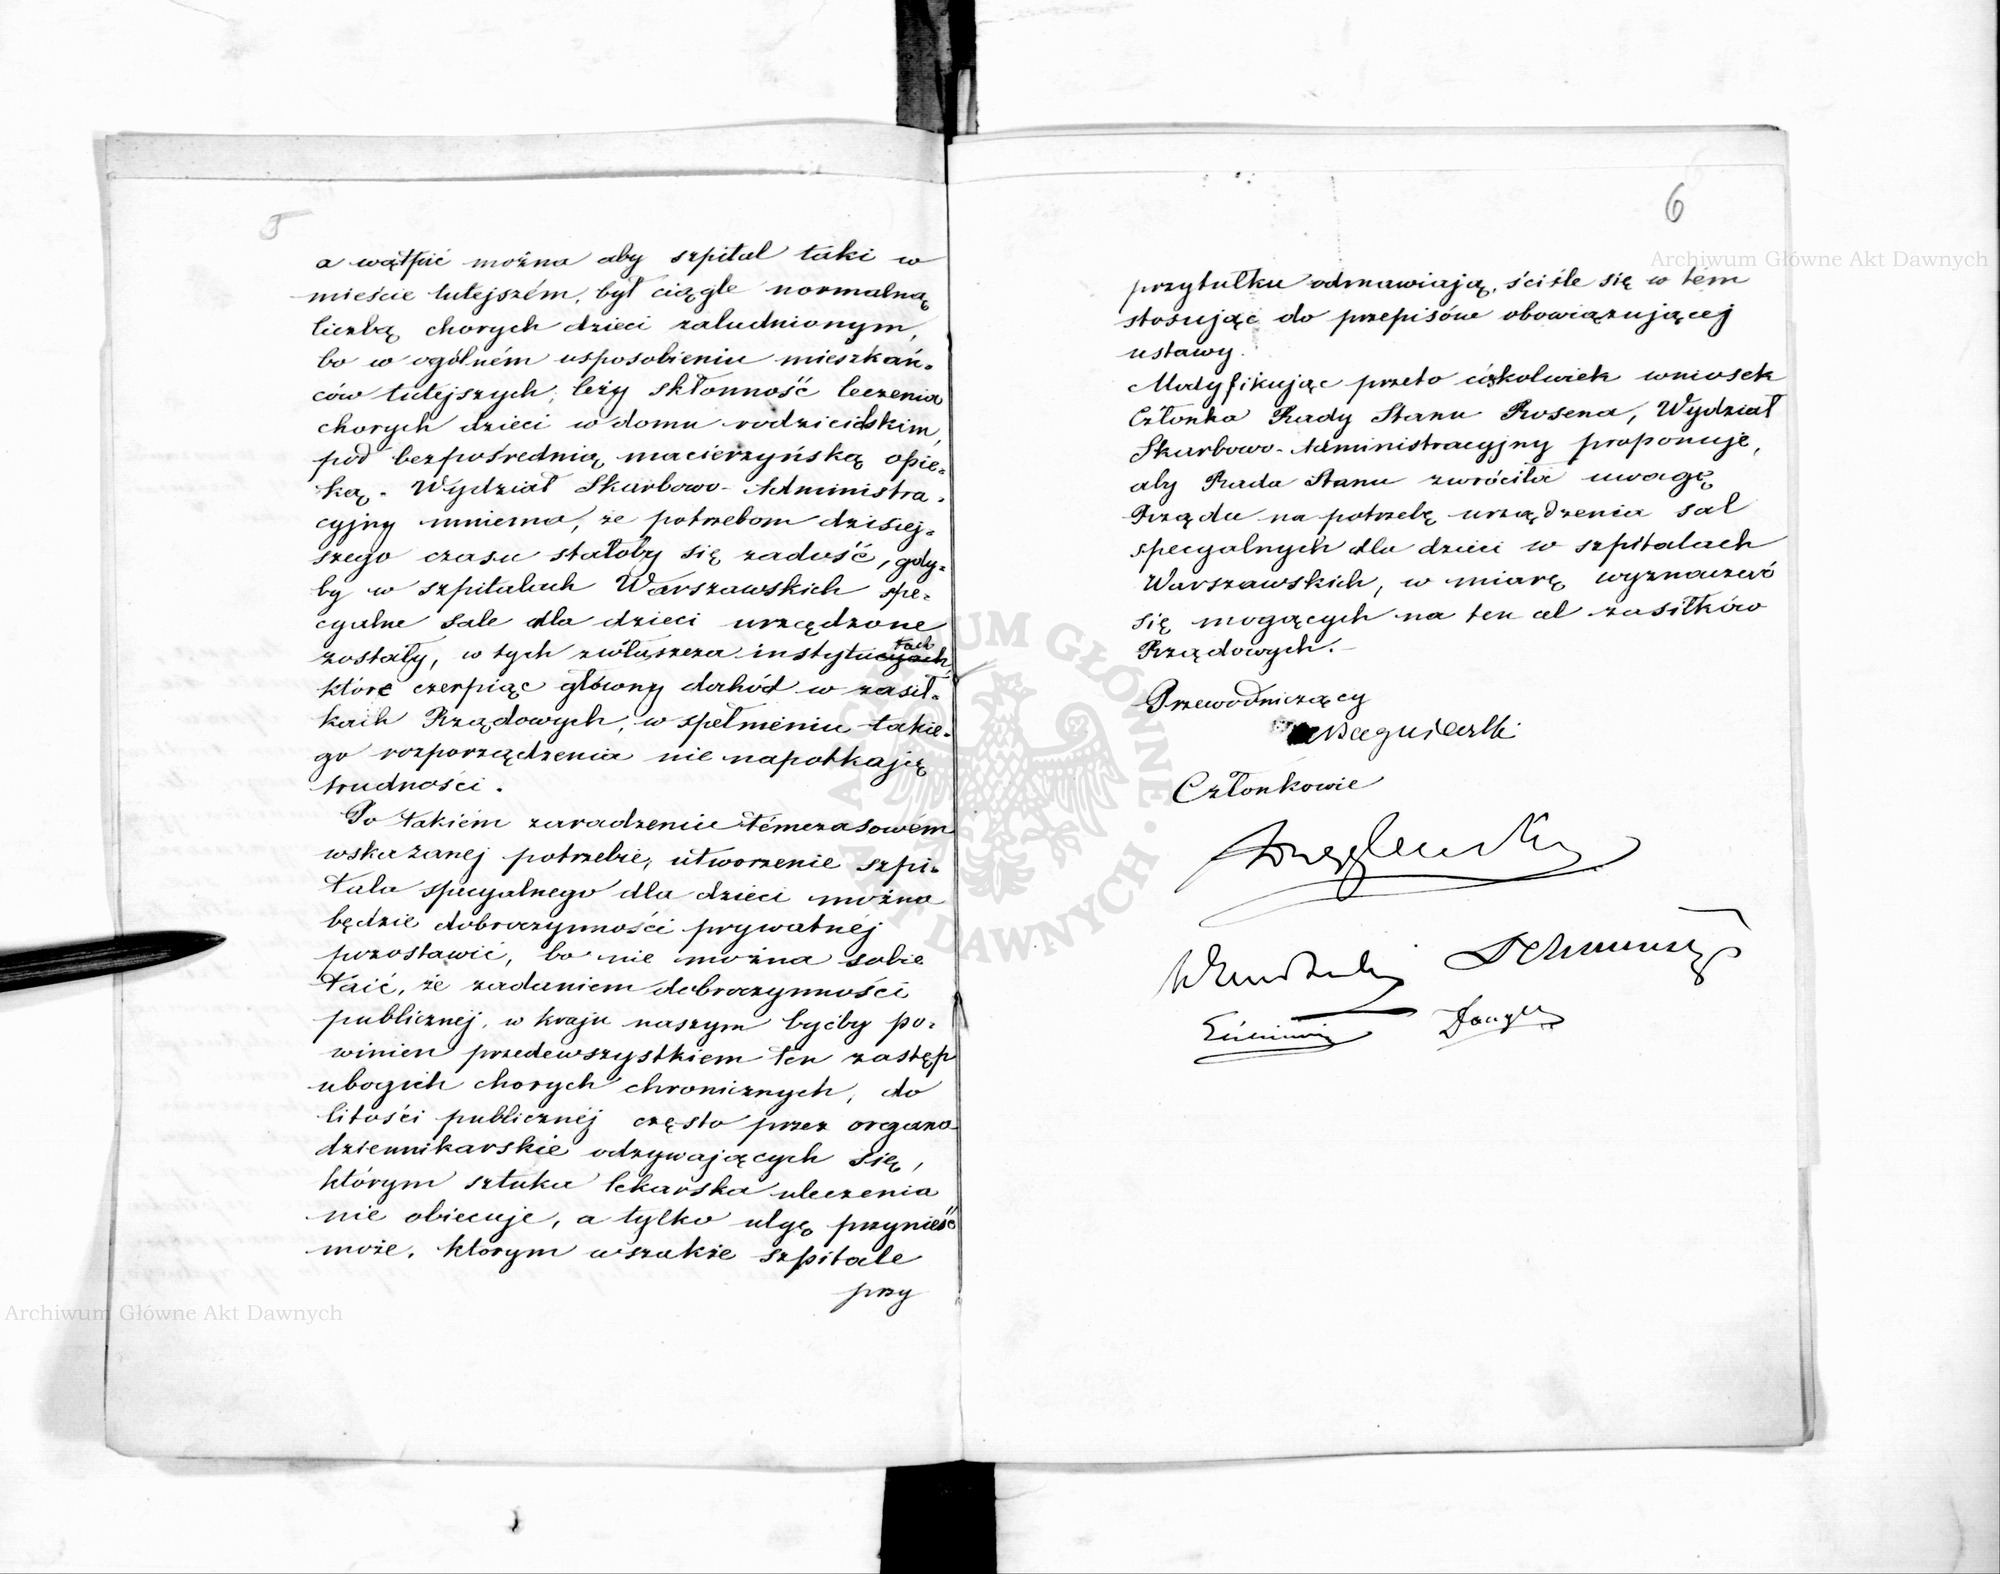 5
a wątpić można aby szpital taki w
mieście tutejszém, był ciągle normalną
liczbą chorych dzieci zaludnionym,
bo w ogólném usposobieniu mieszkań-
ców tutejszych, leży skłonność leczenia
chorych dzieci w domu rodzicielskim,
pod bezpośrednią macierzyńską opie-
ką. Wydział Skarbowo-Administra-
cyjny mniema, że potrzebom dzisiej-
szego czasu stałoby się zadość, gdy-
by w szpitalach Warszawskich spe-
cyalne sale dla dzieci urządzone
zostały, w tych zwłaszcza instytucyach tach,
które czerpiąc główny dochód w zasił-
kach Rządowych, w spełnieniu takie-
go rozporządzenia nie napotkają
trudności.
Po takiém zaradzeniu témczasowém
wskazanej potrzebie, utworzenie szpi-
tala specyalnego dla dzieci można
będzie dobroczynności prywatnéj
pozostawić, bo nie można sobie
taić, że zadaniem dobroczynności
publicznéj, w kraju naszym byćby po-
winien przedewszystkiem ten zastęp
ubogich chorych chronicznych, do
litości publicznéj często przez organa
dziennikarskie odzywających się,
którym sztuka lekarska uleczenia
nie obiecuje, a tylko ulgę przynieść
może, którym wszakże szpitale
przy
6
przytułku odmawiają, ściśle się w tém
stosując do przepisów obowiązującej
ustawy.
Modyfikując przeto cóżkolwiek wniosek
Członka Rady Stanu Rosena, Wydział
Skarbowo-Administracyjny proponuje,
aby Rada Stanu zwróciła uwagę
Rządu na potrzebę urządzenia sal
specyalnych dla dzieci w szpitalach
Warszawskich, w miarę wyznaczać
się mogących na ten cel zasiłków
Rządowych.
Przewodniczący
Członkowie
Archiwum Główne Akt Dawnych
Archiwum Główne Akt Dawnych
ARCHIWUM GŁÓWNE AKT DAWNYCH